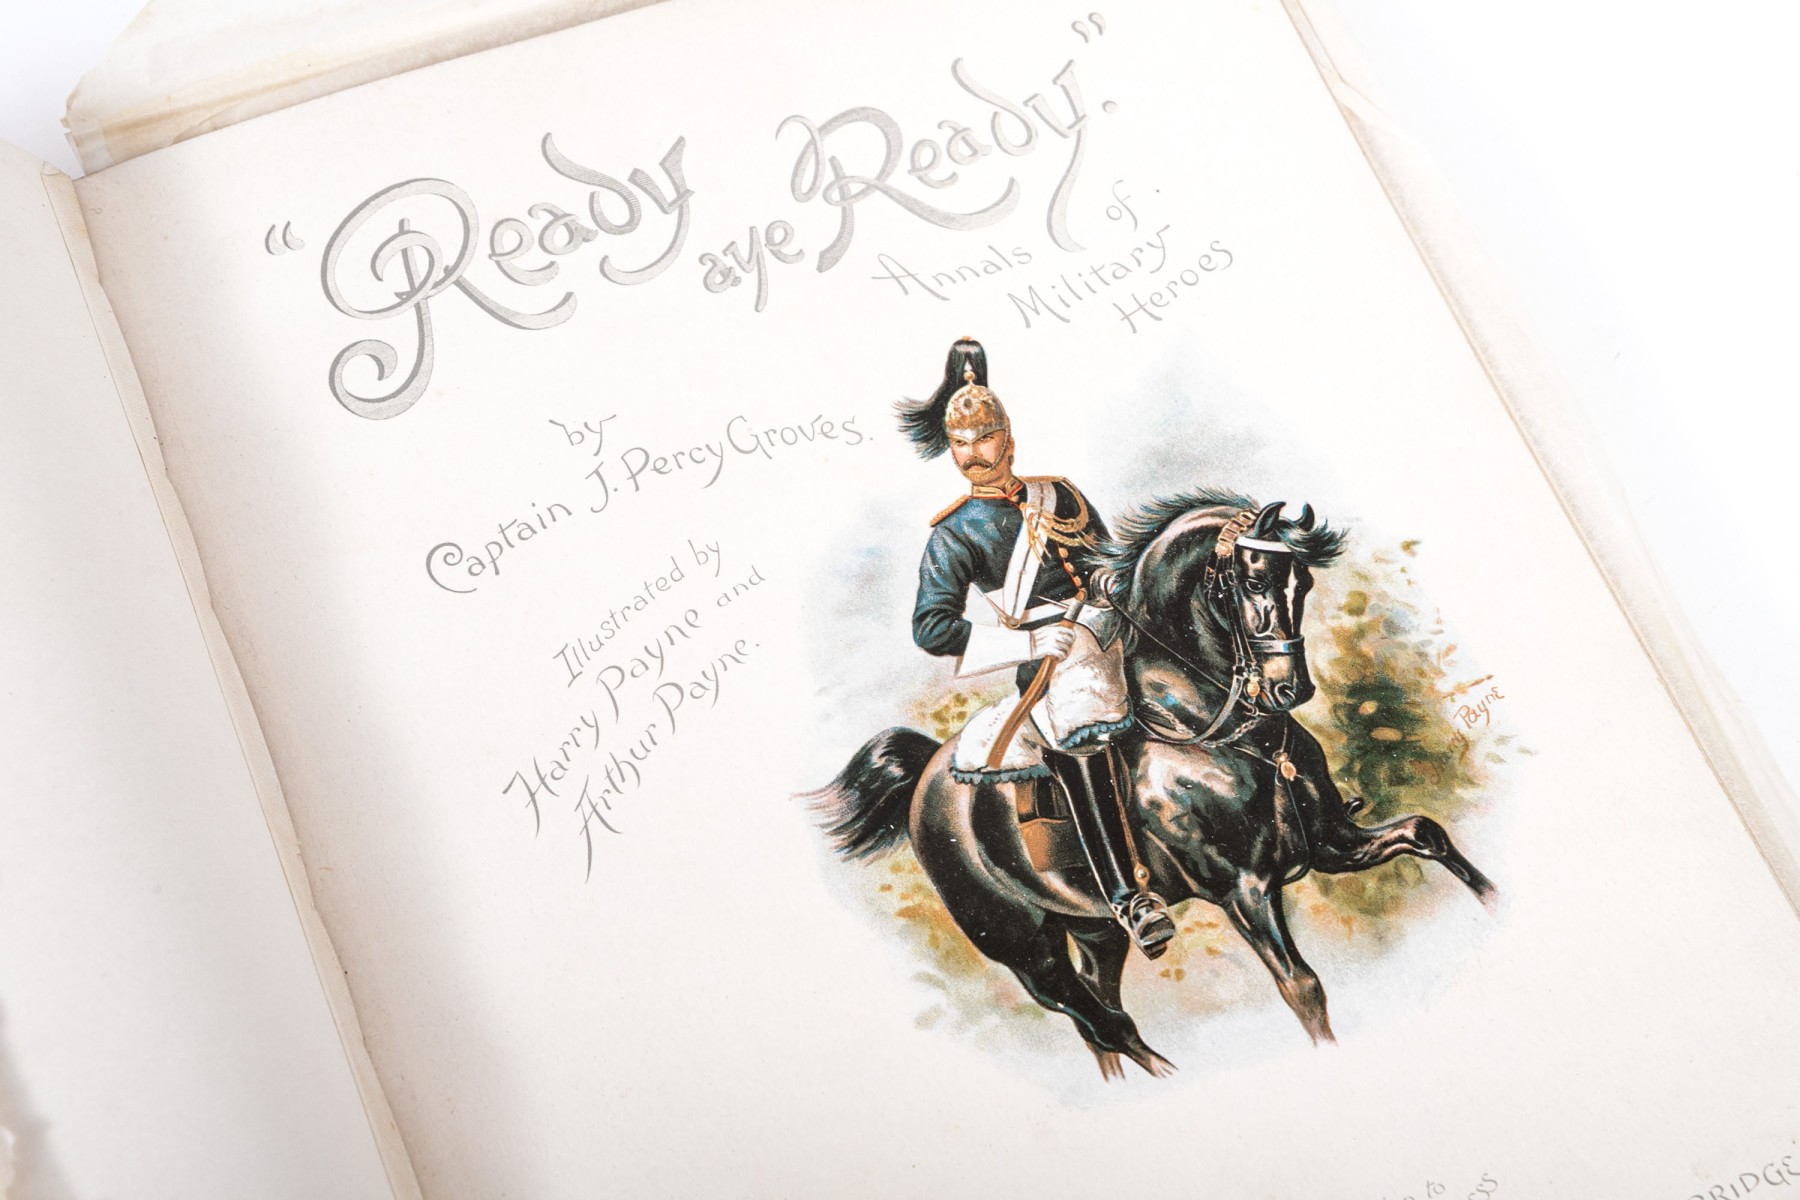 “Ready aye Ready.”
Annals of
Military
Heroes
by
Captain J. Percy Groves.
Illustrated by
Harry Payne and
Arthur Payne.
Payne
to